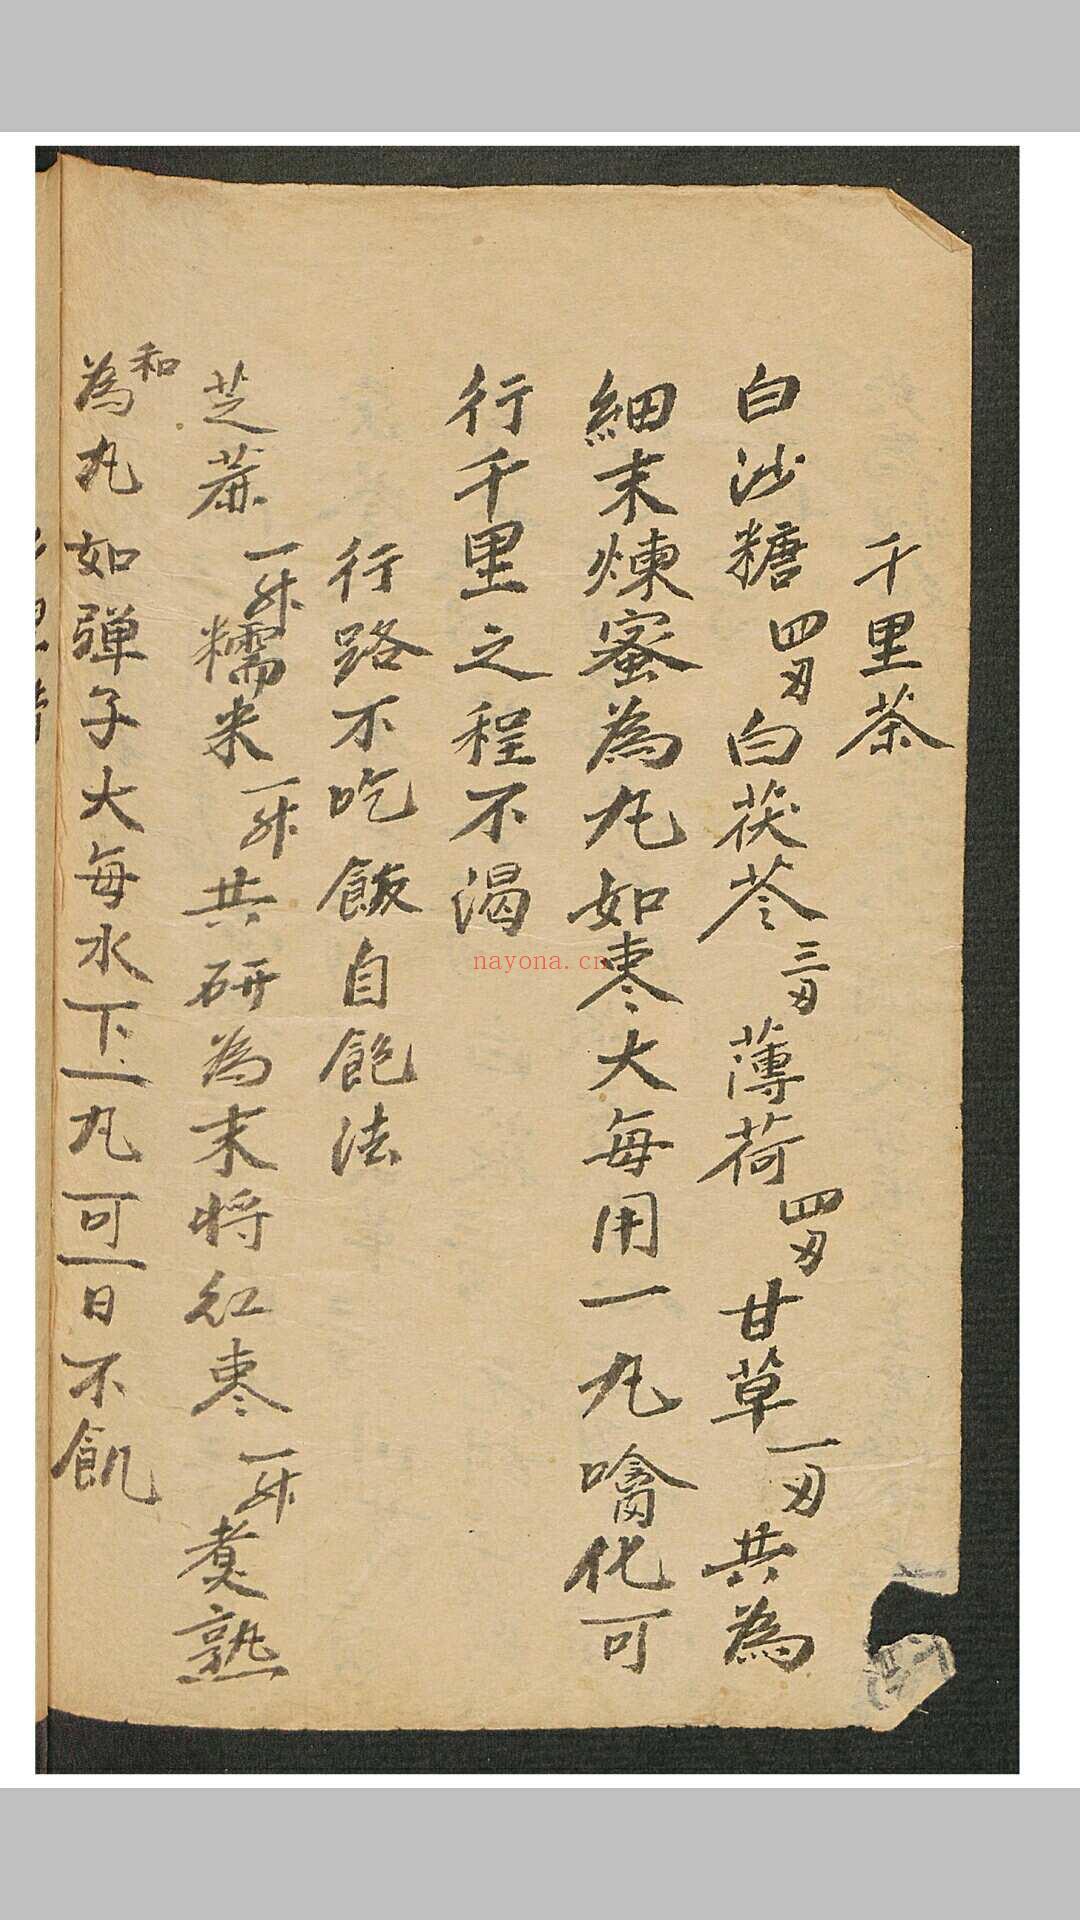 千里茶
白沙糖四刄白茯苓三刄薄荷四刄甘草一刄共為
細末煉蜜為丸如枣大每用一丸噙化可
行千里之程不渴
行路不吃飯自飽法
芝蔴一升糯米一升共研為末将紅枣一升煑熟
和為丸如弾子大每水下一丸可一日不飢
nayona.cn